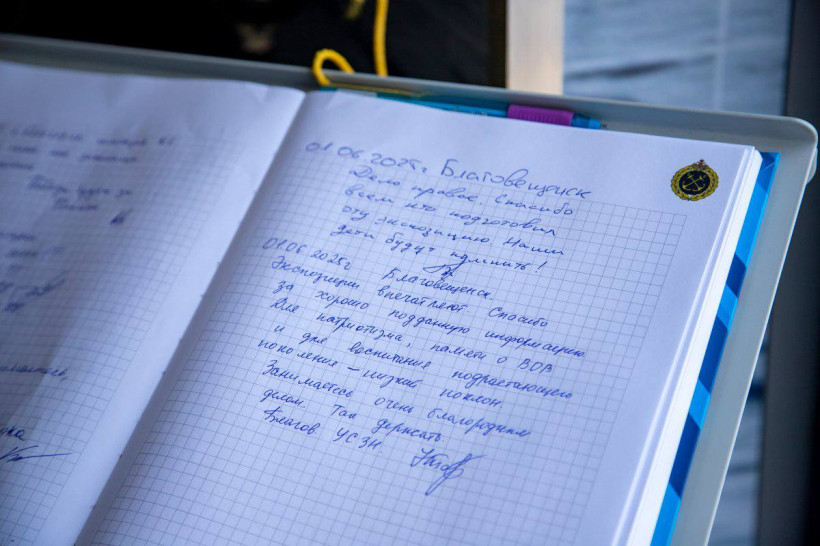 01.06.2025г Благовещенск
Дело правое. Спасибо
всем кто подготовил
эту экспозицию. Наши
дети будут помнить!
01.06.2025г Благовещенск.
Экспозиции впечатляют. Спасибо
за хорошо подданную информацию
Для патриотизма, памяти о ВОВ
и для воспитания подрастающего
поколения – низкий поклон.
Занимаетесь очень благородным
делом. Так держать.
Благов. УСЗН.